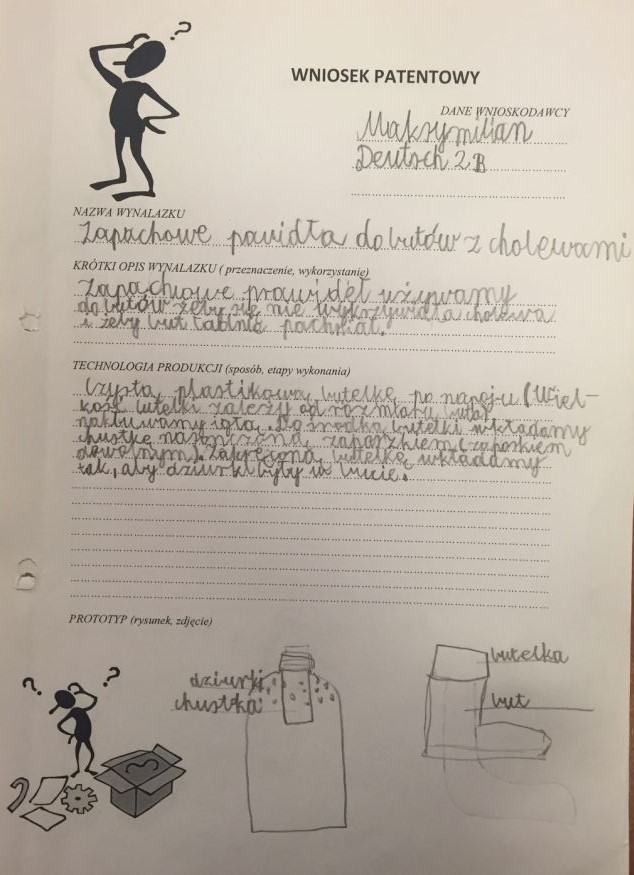 WNIOSEK PATENTOWY
DANE WNIOSKODAWCY
Maksymilian
Deutsch 2B
NAZWA WYNALAZKU
Zapachowe pawidła do butów z cholewami
KRÓTKI OPIS WYNALAZKU ( przeznaczenie, wykorzystanie)
Zapachowe prawideł używamy
do butów żeby się nie wykrzywiła cholewa
i żeby but ładnie pachniał.
TECHNOLOGIA PRODUKCJI (sposób, etapy wykonania)
Czystą plastikową butelkę po napoju (Wiel-
kość butelki zależy od rozmiaru buta)
nakłuwamy igłą. Do środka butelki wkładamy
chustkę nasączoną zapaszkiem (zapaskiem
dowolnym). Zakręconą butelkę wkładamy
tak, aby dziurki były w bucie.
PROTOTYP (rysunek, zdjęcie)
dziurki
chustka
butelka
but